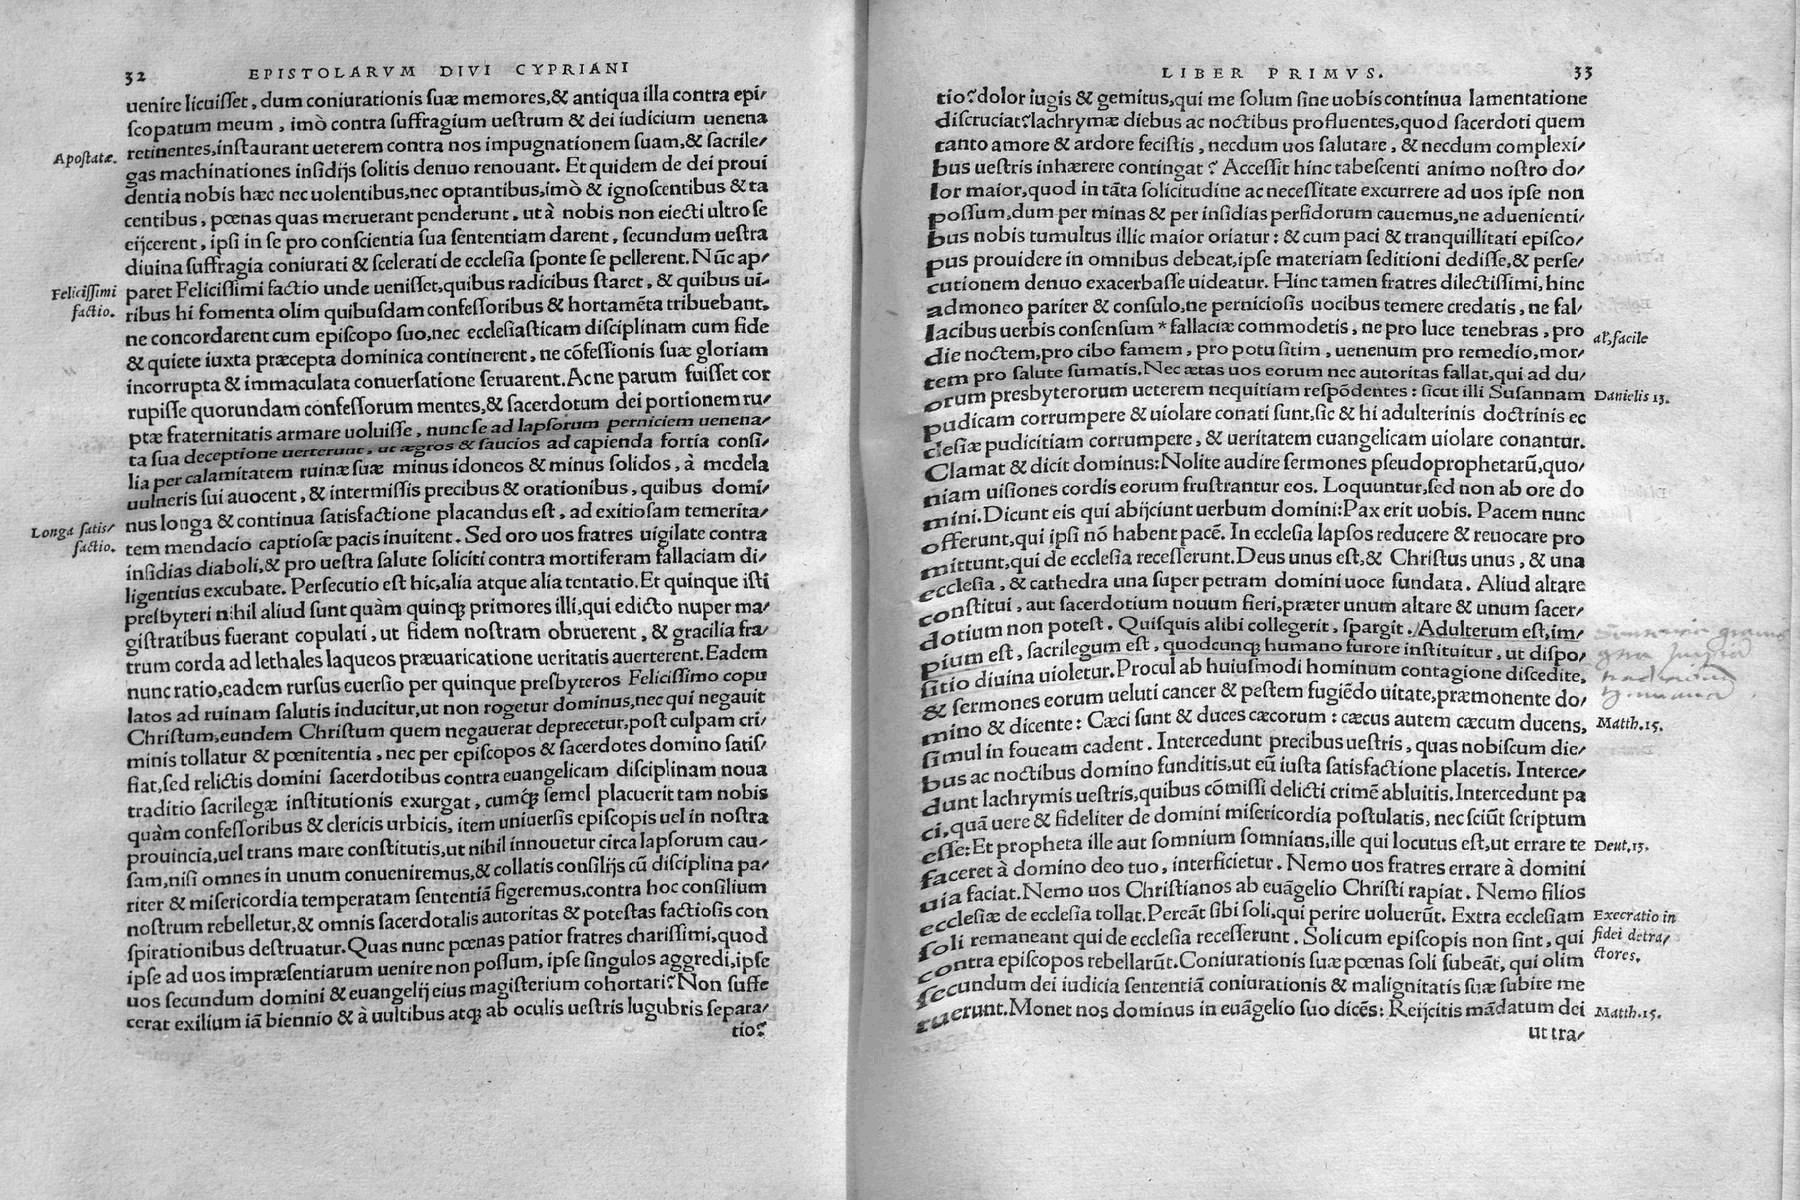 32 EPISTOLARVM DIVI CYPRIANI
uenire licuiſſet, dum coniurationis ſuæ memores,& antiqua illa contra epi/
ſcopatum meum, imò contra ſuffragium ueſtrum & dei iudicium uenena
Apoſtatæ.
retinentes,inſtaurant ueterem contra nos impugnationem ſuam,& ſacrile/
gas machinationes inſidijs ſolitis denuo renouant. Et quidem de dei proui
dentia nobis hæc nec uolentibus,nec optantibus,imò & ignoſcentibus & ta
centibus, pœnas quas meruerant penderunt, ut à nobis non eiecti ultro ſe
eijcerent, ipſi in ſe pro conſcientia ſua ſententiam darent, ſecundum ueſtra
diuina ſuffragia coniurati & ſcelerati de eccleſia ſponte ſe pellerent. Nūc ap/
Feliciſſimi
factio.
paret Feliciſſimi factio unde ueniſſet,quibus radicibus ſtaret, & quibus ui/
ribus hi fomenta olim quibuſdam confeſſoribus & hortamēta tribuebant,
ne concordarent cum epiſcopo ſuo,nec eccleſiaſticam diſciplinam cum fide
& quiete iuxta præcepta dominica continerent, ne cōfeſſionis ſuæ gloriam
incorrupta & immaculata conuerſatione ſeruarent. Ac ne parum fuiſſet cor
rupiſſe quorundam confeſſorum mentes,& ſacerdotum dei portionem ru/
ptæ fraternitatis armare uoluiſſe, nunc ſe ad lapſorum perniciem uenena/
ta ſua deceptione uerterunt, ut ægros & ſaucios ad capienda fortia conſi/
lia per calamitatem ruinæ ſuæ minus idoneos & minus ſolidos, à medela
uulneris ſui auocent, & intermiſſis precibus & orationibus, quibus domi/
Longa ſatiſ/
factio.
nus longa & continua ſatisfactione placandus eſt, ad exitioſam temerita/
tem mendacio captioſæ pacis inuitent. Sed oro uos fratres uigilate contra
inſidias diaboli,& pro ueſtra ſalute ſoliciti contra mortiferam fallaciam di/
ligentius excubate. Perſecutio eſt hic,alia atque alia tentatio. Et quinque iſti
preſbyteri nihil aliud ſunt quàm quinqꝫ primores illi,qui edicto nuper ma/
giſtratibus fuerant copulati, ut fidem noſtram obruerent, & gracilia fra/
trum corda ad lethales laqueos præuaricatione ueritatis auerterent. Eadem
nunc ratio,eadem rurſus euerſio per quinque preſbyteros Feliciſſimo copu
latos ad ruinam ſalutis inducitur,ut non rogetur dominus,nec qui negauit
Chriſtum,eundem Chriſtum quem negauerat deprecetur,poſt culpam cri/
minis tollatur & pœnitentia, nec per epiſcopos & ſacerdotes domino ſatiſ/
fiat,ſed relictis domini ſacerdotibus contra euangelicam diſciplinam noua
traditio ſacrilegæ inſtitutionis exurgat, cumqꝫ ſemel placuerit tam nobis
quàm confeſſoribus & clericis urbicis, item uniuerſis epiſcopis uel in noſtra
prouincia,uel trans mare conſtitutis,ut nihil innouetur circa lapſorum cau/
ſam,niſi omnes in unum conueniremus,& collatis conſilijs cū diſciplina pa/
riter & miſericordia temperatam ſententiā figeremus,contra hoc conſilium
noſtrum rebelletur,& omnis ſacerdotalis autoritas & poteſtas factioſis con
ſpirationibus deſtruatur. Quas nunc pœnas patior fratres chariſſimi,quod
ipſe ad uos impræſentiarum uenire non poſſum, ipſe ſingulos aggredi,ipſe
uos ſecundum domini & euangelij eius magiſterium cohortari? Non ſuffe
cerat exilium iā biennio & à uultibus atqꝫ ab oculis ueſtris lugubris ſepara/
tio?
LIBER PRIMVS. 33
tio? dolor iugis & gemitus,qui me ſolum ſine uobis continua lamentatione
diſcruciat? lachrymæ diebus ac noctibus profluentes,quod ſacerdoti quem
tanto amore & ardore feciſtis, necdum uos ſalutare, & necdum complexi/
bus ueſtris inhærere contingat? Acceſſit hinc tabeſcenti animo noſtro do/
lor maior,quod in tāta ſolicitudine ac neceſſitate excurrere ad uos ipſe non
poſſum,dum per minas & per inſidias perfidorum cauemus,ne aduenienti/
bus nobis tumultus illic maior oriatur: & cum paci & tranquillitati epiſco/
pus prouidere in omnibus debeat,ipſe materiam ſeditioni dediſſe,& perſe/
cutionem denuo exacerbaſſe uideatur. Hinc tamen fratres dilectiſſimi,hinc
admoneo pariter & conſulo,ne pernicioſis uocibus temere credatis, ne fal/
lacibus uerbis conſenſum * fallaciæ commodetis, ne pro luce tenebras, pro
al', facile
die noctem,pro cibo famem, pro potu ſitim, uenenum pro remedio,mor/
tem pro ſalute ſumatis. Nec ætas uos eorum nec autoritas fallat,qui ad du/
orum presbyterorum ueterem nequitiam reſpōdentes: ſicut illi Suſannam
Danielis 13.
pudicam corrumpere & uiolare conati ſunt,ſic & hi adulterinis doctrinis ec
cleſiæ pudicitiam corrumpere, & ueritatem euangelicam uiolare conantur.
Clamat & dicit dominus: Nolite audire ſermones pſeudoprophetarū,quo/
niam uiſiones cordis eorum fruſtrantur eos. Loquuntur,ſed non ab ore do
mini. Dicunt eis qui abijciunt uerbum domini: Pax erit uobis. Pacem nunc
offerunt,qui ipſi nō habent pacē. In eccleſia lapſos reducere & reuocare pro
mittunt,qui de eccleſia receſſerunt. Deus unus eſt,& Chriſtus unus, & una
eccleſia, & cathedra una ſuper petram domini uoce fundata. Aliud altare
conſtitui, aut ſacerdotium nouum fieri,præter unum altare & unum ſacer/
dotium non poteſt. Quiſquis alibi collegerit, ſpargit. Adulterum eſt,im/
pium eſt, ſacrilegum eſt, quodcunqꝫ humano furore inſtituitur, ut diſpo/
ſitio diuina uioletur. Procul ab huiuſmodi hominum contagione diſcedite,
& ſermones eorum ueluti cancer & peſtem fugiēdo uitate,præmonente do/
mino & dicente: Cæci ſunt & duces cæcorum: cæcus autem cæcum ducens,
Matth.15.
ſimul in foueam cadent. Intercedunt precibus ueſtris, quas nobiſcum die/
bus ac noctibus domino funditis,ut eū iuſta ſatisfactione placetis. Interce/
dunt lachrymis ueſtris,quibus cōmiſſi delicti crimē abluitis. Intercedunt pa
ci,quā uere & fideliter de domini miſericordia poſtulatis, nec ſciūt ſcriptum
eſſe: Et propheta ille aut ſomnium ſomnians,ille qui locutus eſt,ut errare te
Deut.13.
faceret à domino deo tuo, interficietur. Nemo uos fratres errare à domini
uia faciat. Nemo uos Chriſtianos ab euāgelio Chriſti rapiat. Nemo filios
eccleſiæ de eccleſia tollat. Pereāt ſibi ſoli,qui perire uoluerūt. Extra eccleſiam
Execratio in
fidei detra/
ctores.
ſoli remaneant qui de eccleſia receſſerunt. Soli cum epiſcopis non ſint, qui
contra epiſcopos rebellarūt. Coniurationis ſuæ pœnas ſoli ſubeāt, qui olim
ſecundum dei iudicia ſententiā coniurationis & malignitatis ſuæ ſubire me
ruerunt. Monet nos dominus in euāgelio ſuo dicēs: Reijcitis mādatum dei
Matth.15.
ut tra/